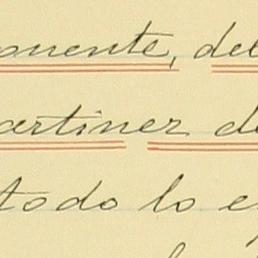 onente, del
artinez de
todo lo e